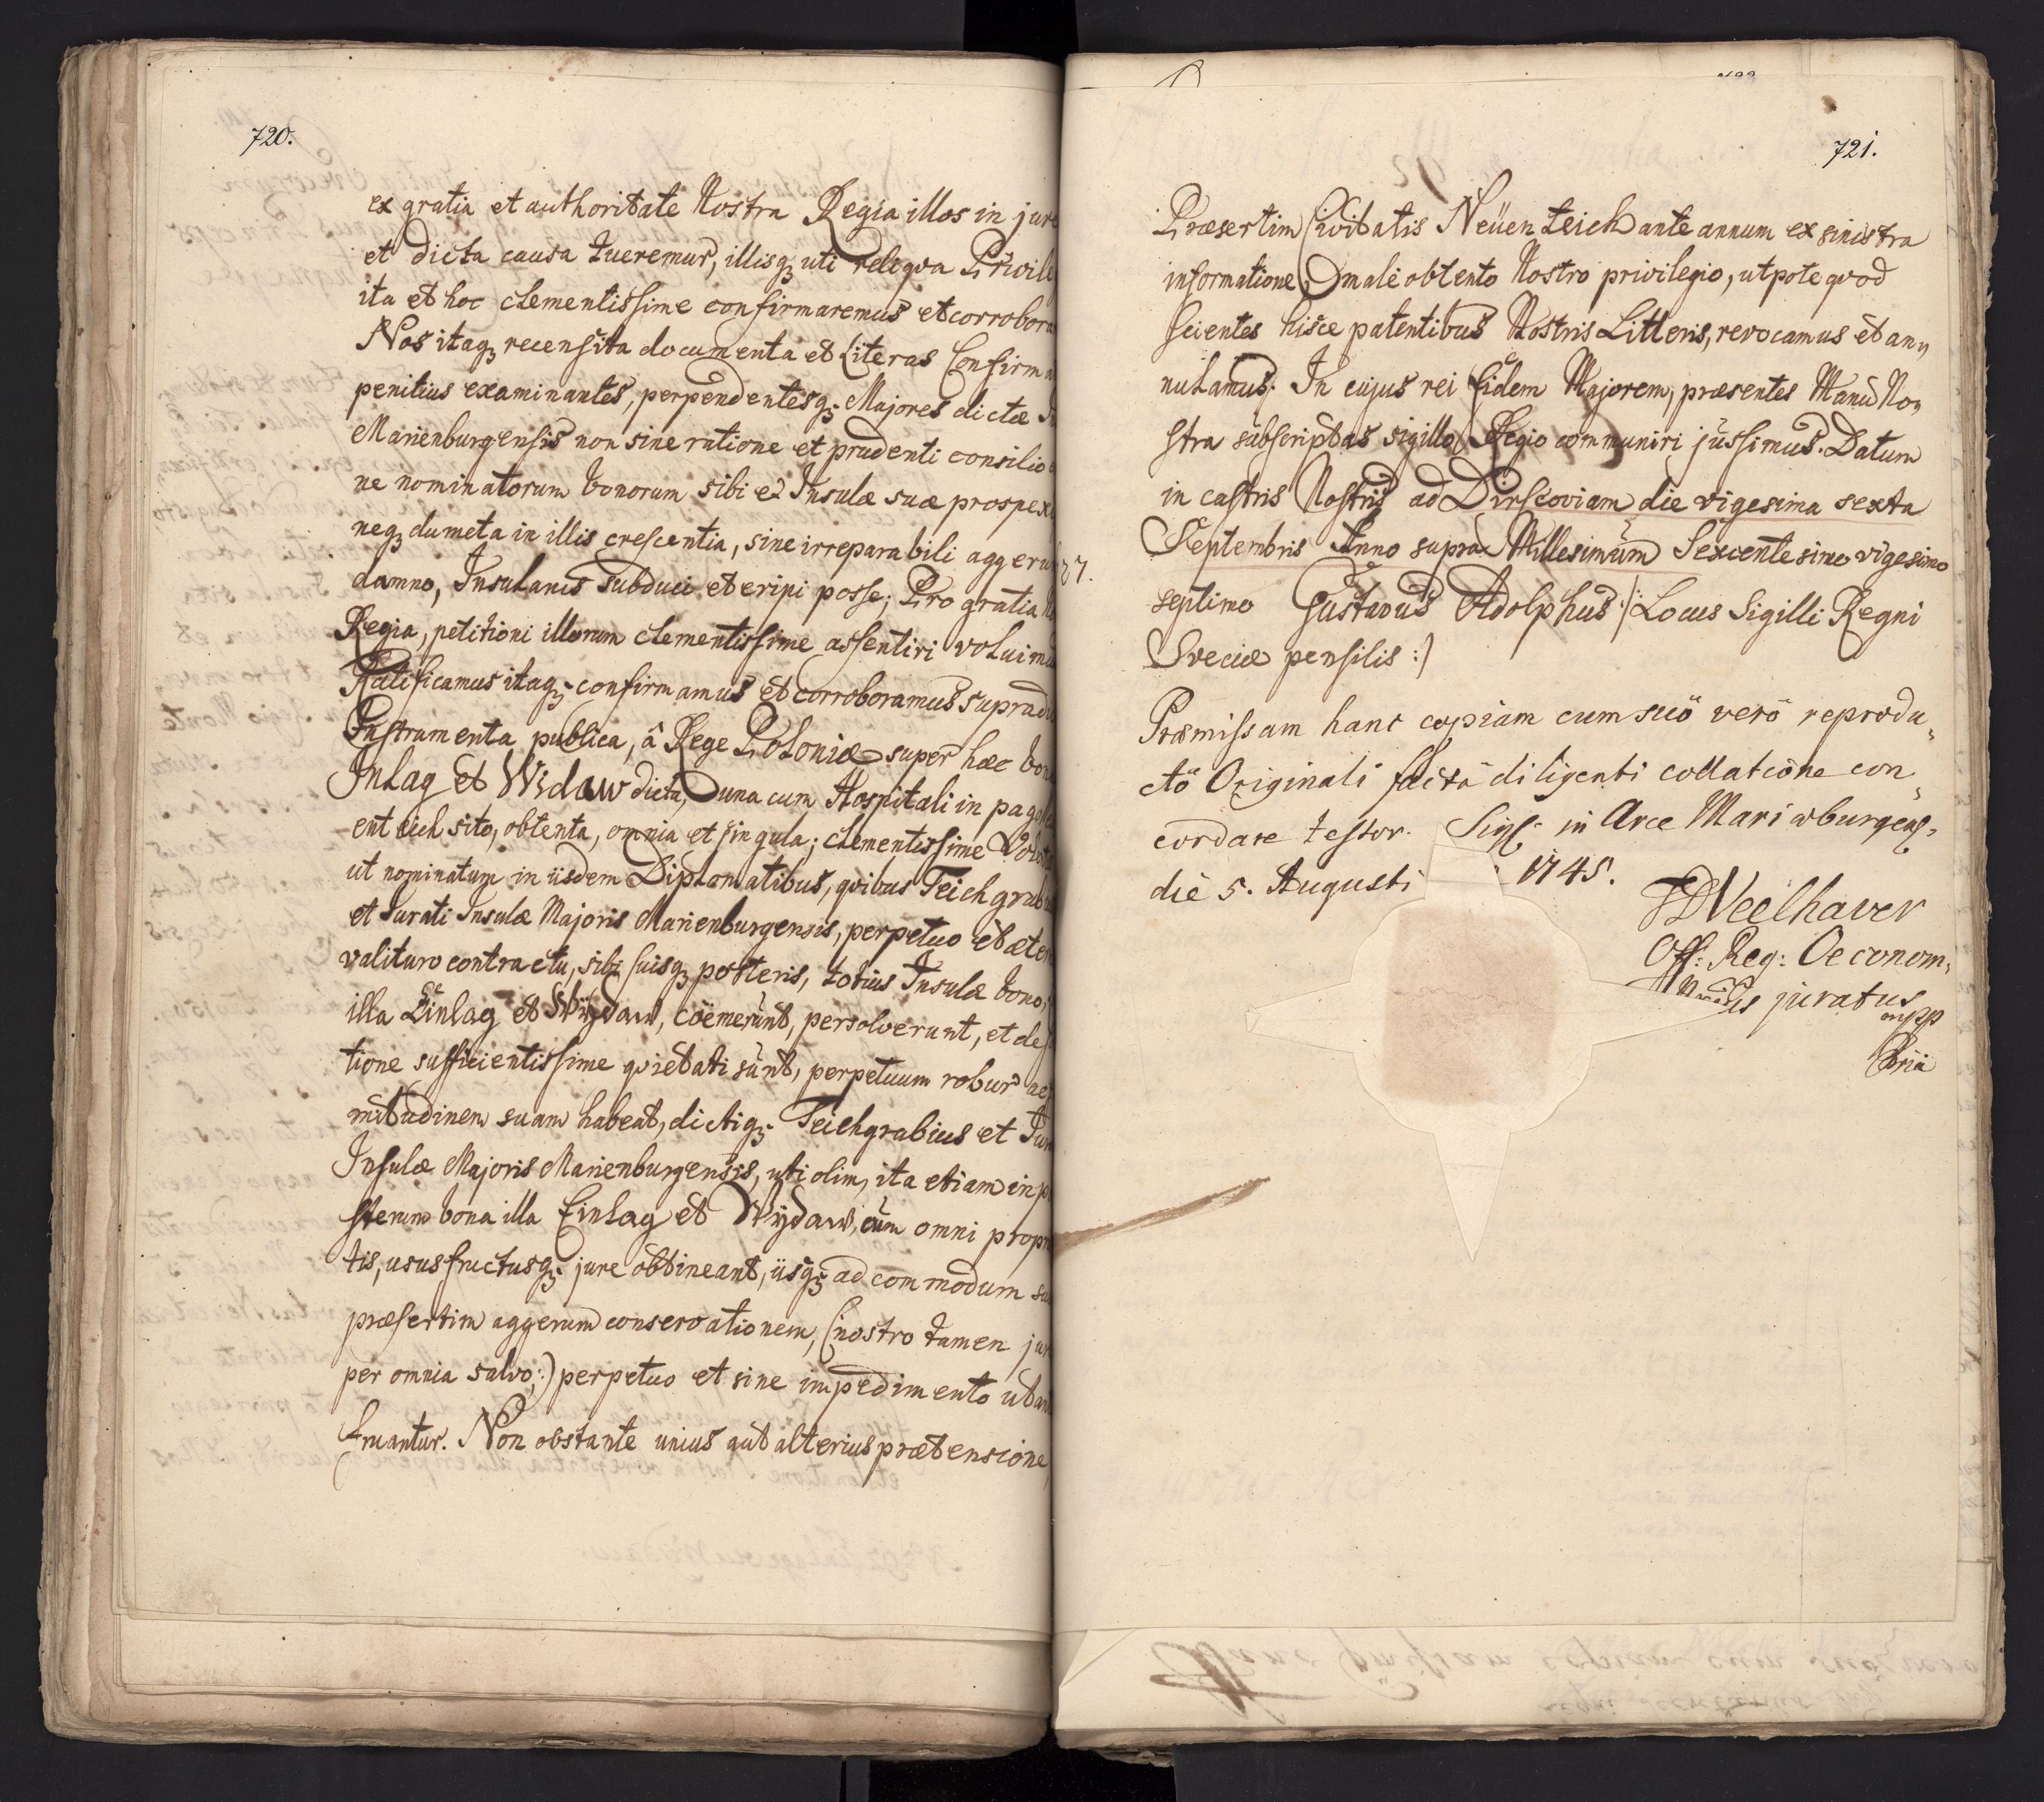 720.
ex gratia et authoritate Nostra Regia illos in jure
et dicta causa tueremur, illisq; uti reliqva Privile
ita et hoc clementissime confirmaremus et corrobora
Nos itaq; recensita documenta et Literas Confirma
penitius examinantes, perpendentesq; Majores dictæ In
Marienburgensis non sine ratione et prudenti consilio
ne nominatorum bonorum sibi et Insulæ suæ prospex
neq; dumeta in illis crescentia, sine irreparabili aggeru
damno, Insulanis subduci et eripi posse; Pro gratia No
Regia, petitioni illorum clementissime assentiri voluimu
Ratificamus itaq; confirmamus et corroboramus supradi
Instrumenta publica, â Rege Poloniæ super hæc bon
Inlag et Widaw dicta, una cum Hospitali in pago
enteich sito, obtenta, omnia et singula; clementissime Vol
ut nominatum in iisdem Diplomatibus, qvibus Teichgrab
et Jurati Insulæ Majoris Marienburgensis, perpetuo et æter
valituro contractu, sibi suisq; posteris, totius Insulæ bono,
illa Einlag et Wÿdaw, coëmerunt, persolverunt, et de
tione sufficientissime qvietati sunt, perpetuum robur ac
mitudinem suam habeat, dictiq; Teichgrabius et Jura
Insulæ Majoris Marienburgensis, uti olim, ita etiam in p
sterum bona illa Einlag et Wÿdaw, cum omni propri
tis, ususfructusq; jure obtineant, iisq; ad commodum su
præsertim aggerum conservationem, (nostro tamen jur
per omnia salvo;) perpetuo et sine impedimento utan
fruantur. Non obstante unius aut alterius prætensione
721.
Præsertim Civitatis Neüenteich ante annum ex sinistra
informatione, malè obtento Nostro privilegio, utpote qvod
scientes hisce patentibus Nostris Litteris, revocamus et an„
nulamus. In cujus rei fidem Majorem, præsentes Manu No„
stra subscriptas sigillo Regio communiri jussimus. Datum
in castris Nostris ad Dirscoviam die vigesima sexta
Septembris Anno supra Millesimum Sexcentesimo vigesimo
septimo Gustavus Adolphus /: Locus Sigilli Regni
Sveciæ pensilis :/
Præmissam hanc copiam cum suo vero reprodu„
cto Originali factâ diligenti collatione con„
cordare testor. in Arce Mariæburgens,
die 5. Augusti 1745.
Off: Reg: Oeconom,
juratus
mpp